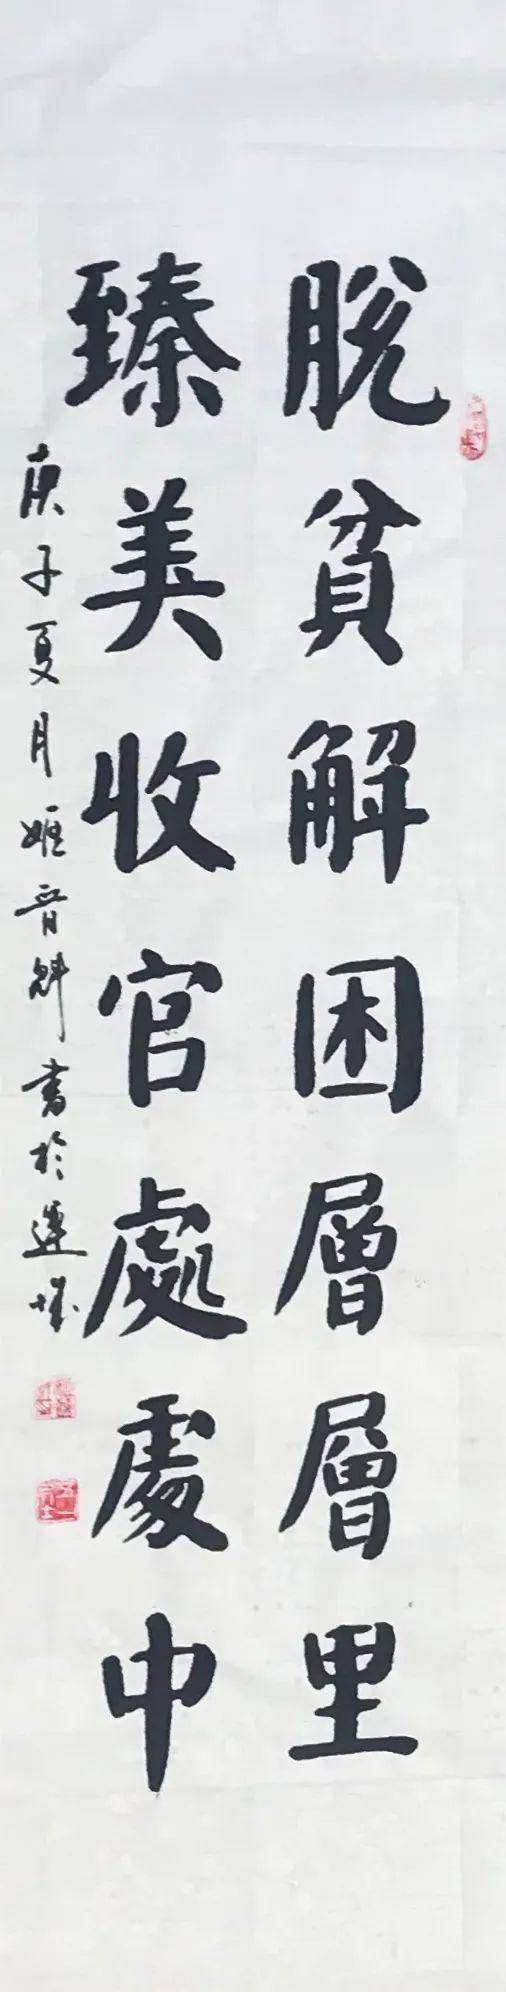 脫貧解困層層里
臻美收官處處中
庚子夏月姬晋斛書於蓮城